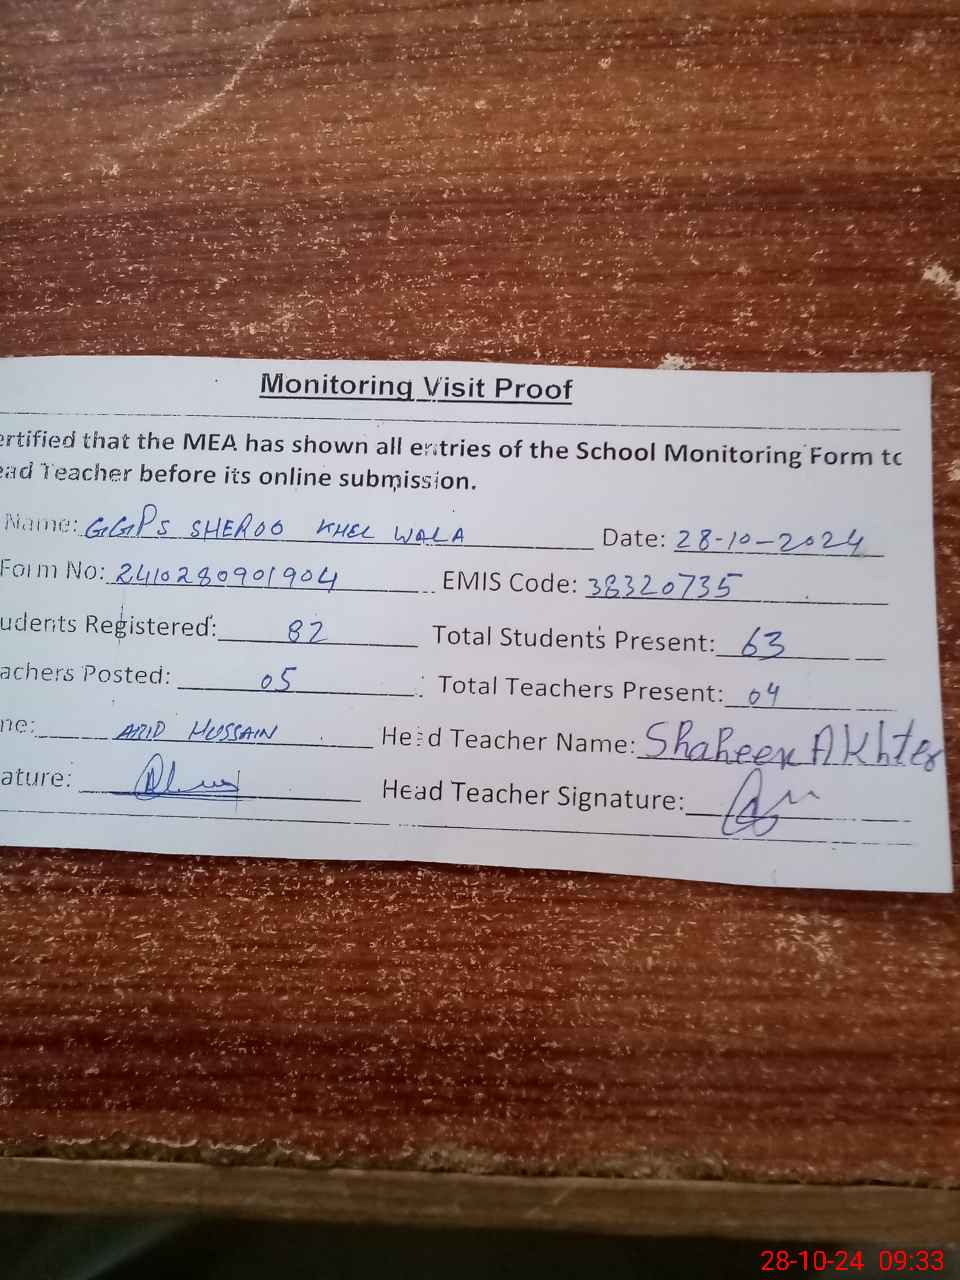 Monitoring Visit Proof
ertified that the MEA has shown all entries of the School Monitoring Form to
ead Teacher before its online submission.
Name: GGPS SHEROO KHEL WALA Date: 28-10-2024
Form No: 2410280901904 EMIS Code: 38320735
udents Registered: 82 Total Students Present: 63
achers Posted: 05 Total Teachers Present: 04
me: ABID HUSSAIN Head Teacher Name: Shaheen Akhter
ature: Head Teacher Signature:
28-10-24 09:33